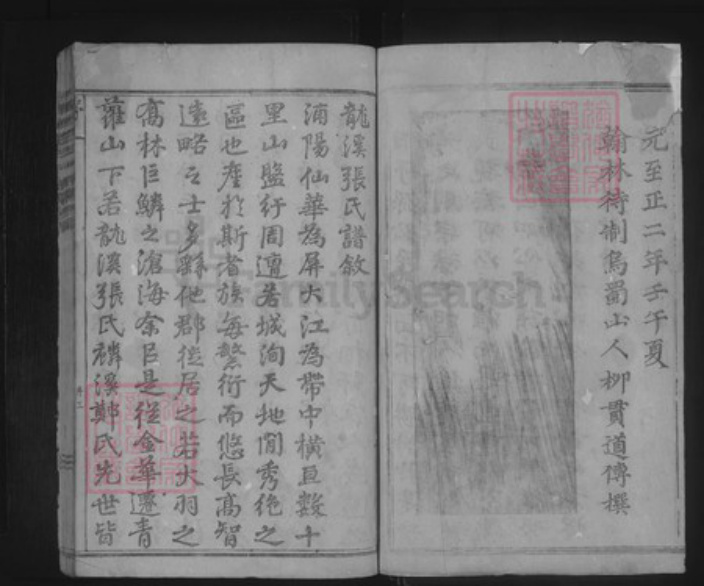 元至正二年壬午夏
翰林待制烏蜀山人柳貫道傳撰
龍溪張氏譜敘
浦陽仙華為屏大江為帶中橫亘數十
里山盤紆周遭若城洵天地間秀絕之
區也產於斯者族每繁衍而悠長高智
遠略之士多繇他郡徙居之若大羽之
喬林巨鱗之滄海余臣是從金華遷青
蘿山下若龍溪張氏麟溪鄭氏先世皆
FamilySearch